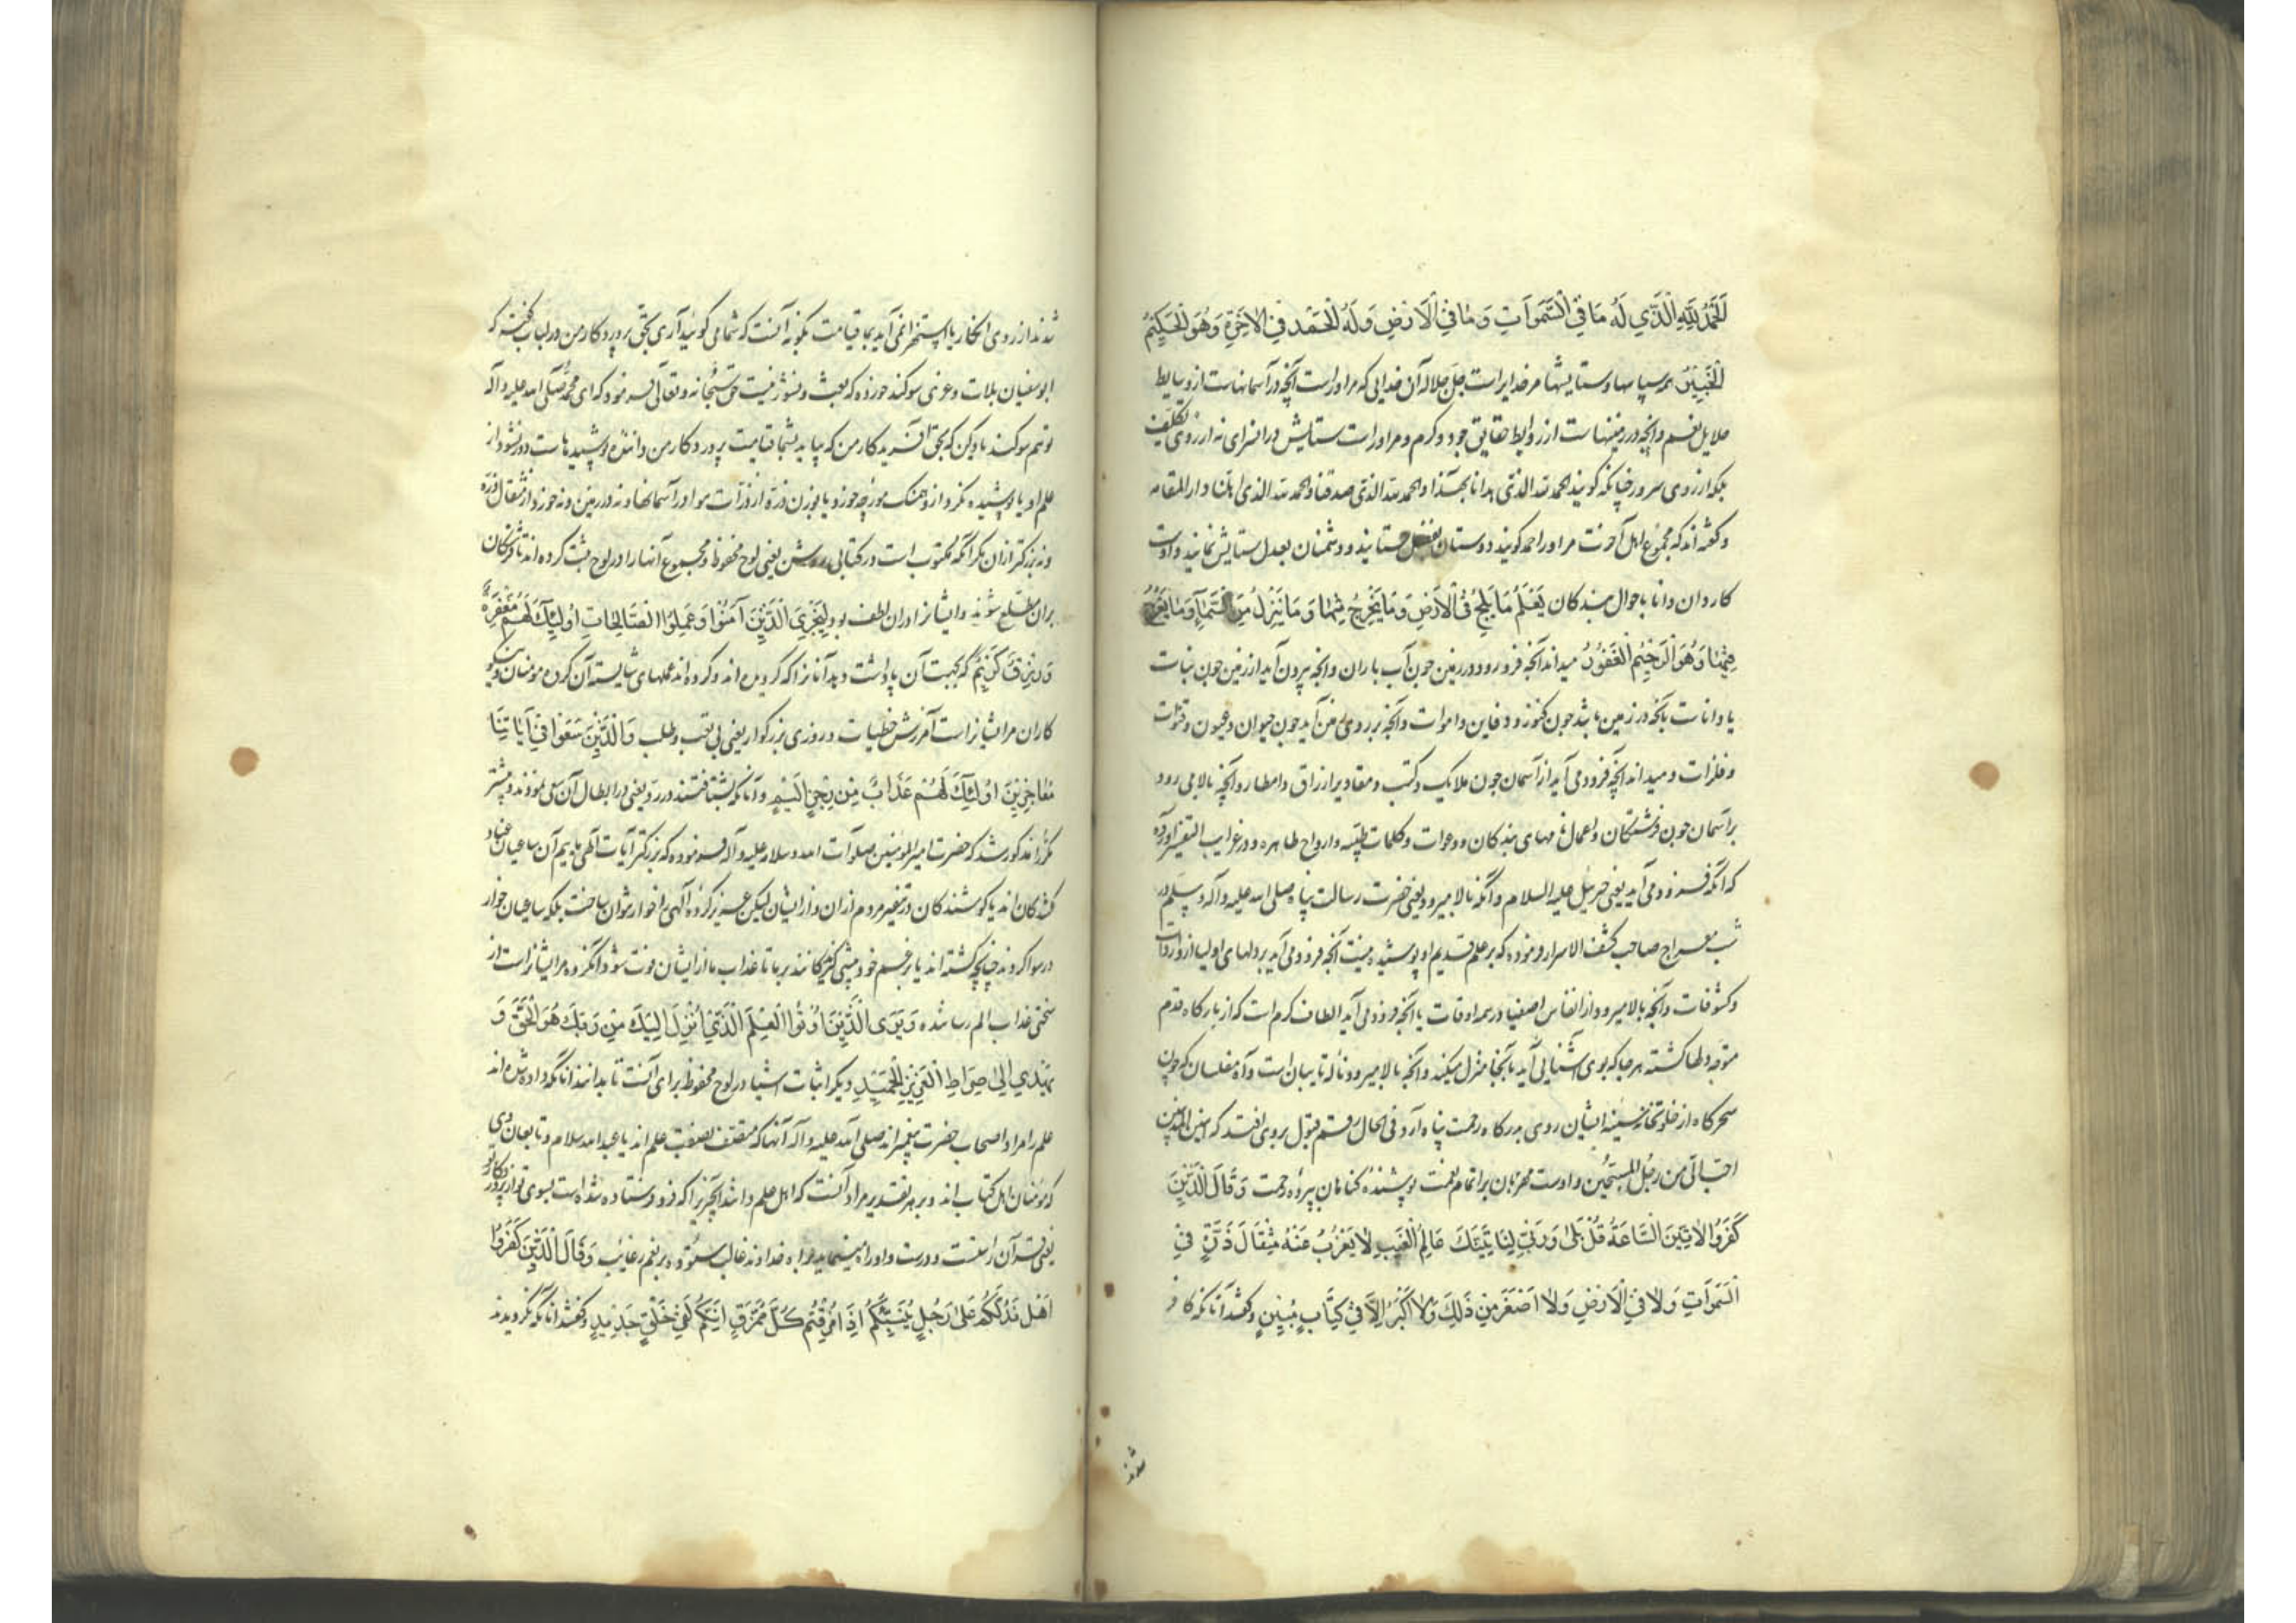 اَلْحَمْدُ لِلّهِ الَّذِي لَهُ مَا فِي السَّمَوَاتِ وَ مَا فِي الْاَرْضِ وَ لَهُ الْحَمْد فِي الْاخِرَةِ وَ هُوَ الْحَكِيمُ
الْخَبِيرُ همه سپاسها و ستایشها مر خدایراست جل جلاله آن خدایی که مر اوراست آنچه در آسمانهاست از وسایط
جلایل نعم و انچه در زمینهاست از روابط حقایق جود و کرم و مر اوراست ستایش در ان سرای نه از روی تکلیف
بلکه از روی سرور چنانکه کویند الحمد لله الذی هدانا لهذا و الحمد لله الذی صدقنا و الحمد لله الذی احلنا دار المقامه
و کفته اند که مجموع اهل آخرت مر او را حمد کویند دوستان بفضل ستایند و دشمنان بعدل ستایش نمایند و اوست
کاردان و دانا باحوال بندکان يَعْلَمُ مَا يَلِجُ فِي الْاَرْضِ وَ مَا يَخْرُجُ مِنْهَا وَ مَا يَنْزِلُ مِنَ السَّمَآءِ وَ مَا يَعْرُجُ
فِيهَا وَ هُوَ الرَّحِيمُ الْغَفُورُ میداند آنچه فرو رود در زمین چون آب باران و انچه بیرون آید از زمین چون نبات
یا داناست بآنچه در زمین باشد چون کنوز و دفاین و اموات و آنچه بر روی زمین آید چون حیوان و عیون و
و فلزات و میداند انچه فرود می آید از آسمان چون ملایک و کتب و مقادیر ارزاق و امطار و آنچه بالا می رود
بر آسمان چون فرشتکان و اعمال نامهای بندکان و دعوات و کلمات طیبه و ارواح طاهره و در غرایب التفسیر آورده
که آنکه فرود می آید یعنی جبرئیل علیه السلام و آنکه بالا میرود یعنی حضرت رسالت پناه صلی الله علیه و آله و سلم در
شب معراج صاحب کشف الاسرار فرموده که بر علم قدیم او پوشیده نیست آنچه فرود می آید بر دلهای اولیا از واردات
و کشوفات و آنچه بالا میرود از انفاس اصفیا در همه اوقات یا آنچه فرود می آید الطاف کرم است که از بارکاه قدم
متوجه دلها کشته هر جا که بوی آشنایی آید بآنجا منزل میکند و آنچه بالا میرود ناله تایبان است و آه مفلسان که چون
سحرکاه از خلوتخانه سینه ایشان روی بدرکاه رحمت پناه آرد فی الحال رقم قبول بروی افتد که انین المذنبین
احب الی من زجل المسبحین و اوست مهربان بر اتمام نعمت پوشنده کناهان بپرده رحمت وَ قَالَ الَّذِينَ
كَفَرُوا لَا تَاْتِينَا السَّاعَةُ قُلْ بَلَى وَ رَبِّي لَتَاْتِيَنَّكُمْ عَالِمِ الْغَيْبِ لَا يَعْزُبُ عَنْهُ مِثْقَالُ ذَرَّةٍ فِي
السَّمَوَاتِ وَ لَا فِي الْاَرْضِ وَ لَا اَصْغَرُ مِنْ ذَلِكَ وَ لَا اَكْبَرُ اِلَّا فِي كِتَابٍ مُبِينٍ و کفتند آنانکه کافر
شدند
شدند از روی انکار یا استهزا نمی آید بما قیامت بکو نه آنست که شما می کوئید آری بحق پروردکار من در لباب کفته که
ابو سفیان بلات و عزی سوکند خورده که بعث و نشور نیست حق سبحانه و تعالی فرمود که ای محمد صلی الله علیه و آله
تو هم سوکند یاد کن که بحق آفریدکار من که بیاید بشما قیامت پروردکار من داننده پوشیدهاست دور نشود از
علم او یا پوشیده نکردد از وهنک مورچه خورد یا بوزن ذره از ذرات مر او را در آسمانها و نه در زمین و نه خورد از مثقال ذره
و نه بزرکتر از ان مکر آنکه مکتوب است در کتابی روشن یعنی لوح محفوظ و مجموع آنها را در لوح ثبت کرده اند تا فرشتکان
بران مطلع شوند و ایشانرا دران لطف بود لِيَجْزِيَ الَّذِينَ آمَنُوا وَ عَمِلُوا الصَّالِحَاتِ اُولَئِكَ لَهُمْ مَغْفِرَةٌ
وَ رِزْقٌ كَرِيمٌ که بجهت آن پاداشت دهد آنانرا که کرویده اند و کرده اند عملهای شایسته آن کروه مومنان و نیکو
کاران مر ایشانراست آمرزش خطیات و روزی بزرکوار یعنی بی تعب و طلب وَ الَّذِينَ سَعَوْا فِي آيَاتِنَا
مُعَاجِزِينَ اُولَئِكَ لَهُمْ عَذَابٌ مِنْ رِجْزٍ اَلِيمٍ و آنانکه بشتافتند در رد یعنی در ابطال آن سعی نمودند و پیشتر
مکررا مذکور شد که حضرت امیر المومنین صلوات الله و سلامه علیه و آله فرموده که بزرکتر آیات الهی ماییم آن ساعیان عناد
کنندکان اند یا کوشندکان در تنفیر مردم ازان و از ایشان لیکن عزیز کرده الهی را خوار نتوان ساخت بلکه ساعیان خوار
و رسوا کردند چنانچه کشته اند یا بزعم خود پیشی کیرندکانند بر ما تا عذاب ما از ایشان فوت شود آنکروه مر ایشانراست از
سختی عذاب الم رساننده وَ يَرَى الَّذِينَ اُوتُوا الْعِلْمَ الَّذِي اُنْزِلَ اِلَيْكَ مِنْ رَبِّكَ هُوَ الْحَقَّ وَ
يَهْدِي اِلَى صِرَاطِ الْعَزِيزِ الْحَمِيدِ دیکر اثبات اشیا در لوح محفوظ برای آنست تا بدانند آنانکه داده شده اند
علم را مراد اصحاب حضرت پیغمبراند صلی الله علیه و آله آنها که متصف بصفت علم اند یا عبد الله سلام و تابعان وی
که مومنان اهل کتاب اند و بر هر تقدیر مراد آنست که اهل علم دانند آنچیز را که فرو فرستاده شده است بسوی تو از پروردکار تو
یعنی قرآن راست و درست و او راه مینماید براه خداوند غالب ستوده بر نعم رغائب وَ قَالَ الَّذِينَ كَفَرُوا
هَلْ نَدُلُّكُمْ عَلَى رَجُلٍ يُنَبِّئُكُمْ اِذَا مُزِّقْتُمْ كُلَّ مُمَزَّقٍ اِنَّكُمْ لَفِي خَلْقٍ جَدِيدٍ و کفتند آنانکه نکرویدند